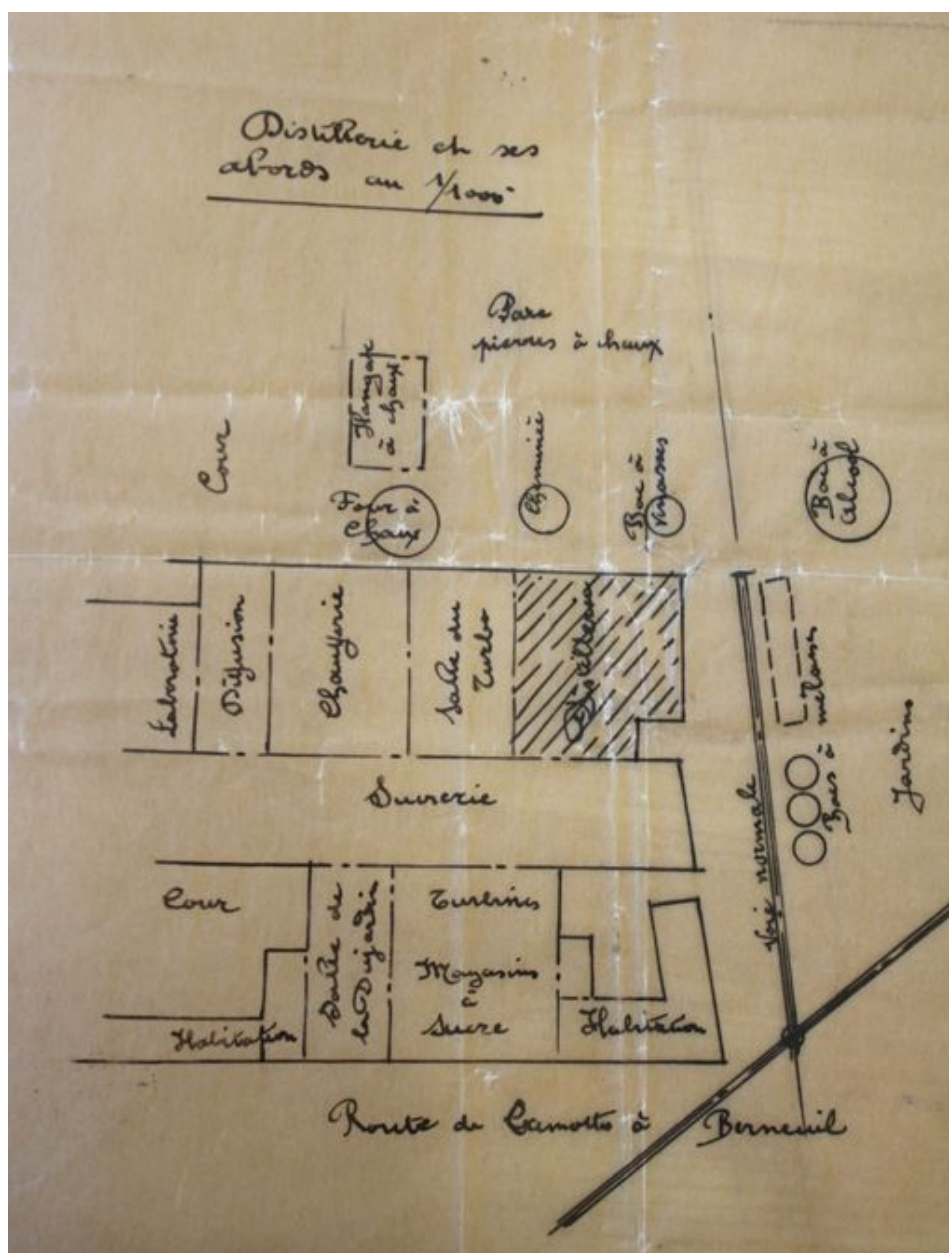 Distillerie et ses
abords au 1/1000
Parc
pierres à chaux
Hangar
à chaux
Cour
Cheminée
Four à
Chaux
Bac à
vinasses
Bac à
alcool
Laboratoire
Diffusion
Chaufferie
Salle du
Turbo
Distillerie
Bacs à mélasses
Jardins
Sucrerie
Voie normale
Cour
Salle de
la Dujardin
Turbines
Magasins
à
Sucre
Habitation
Habitation
Route de à Berneuil